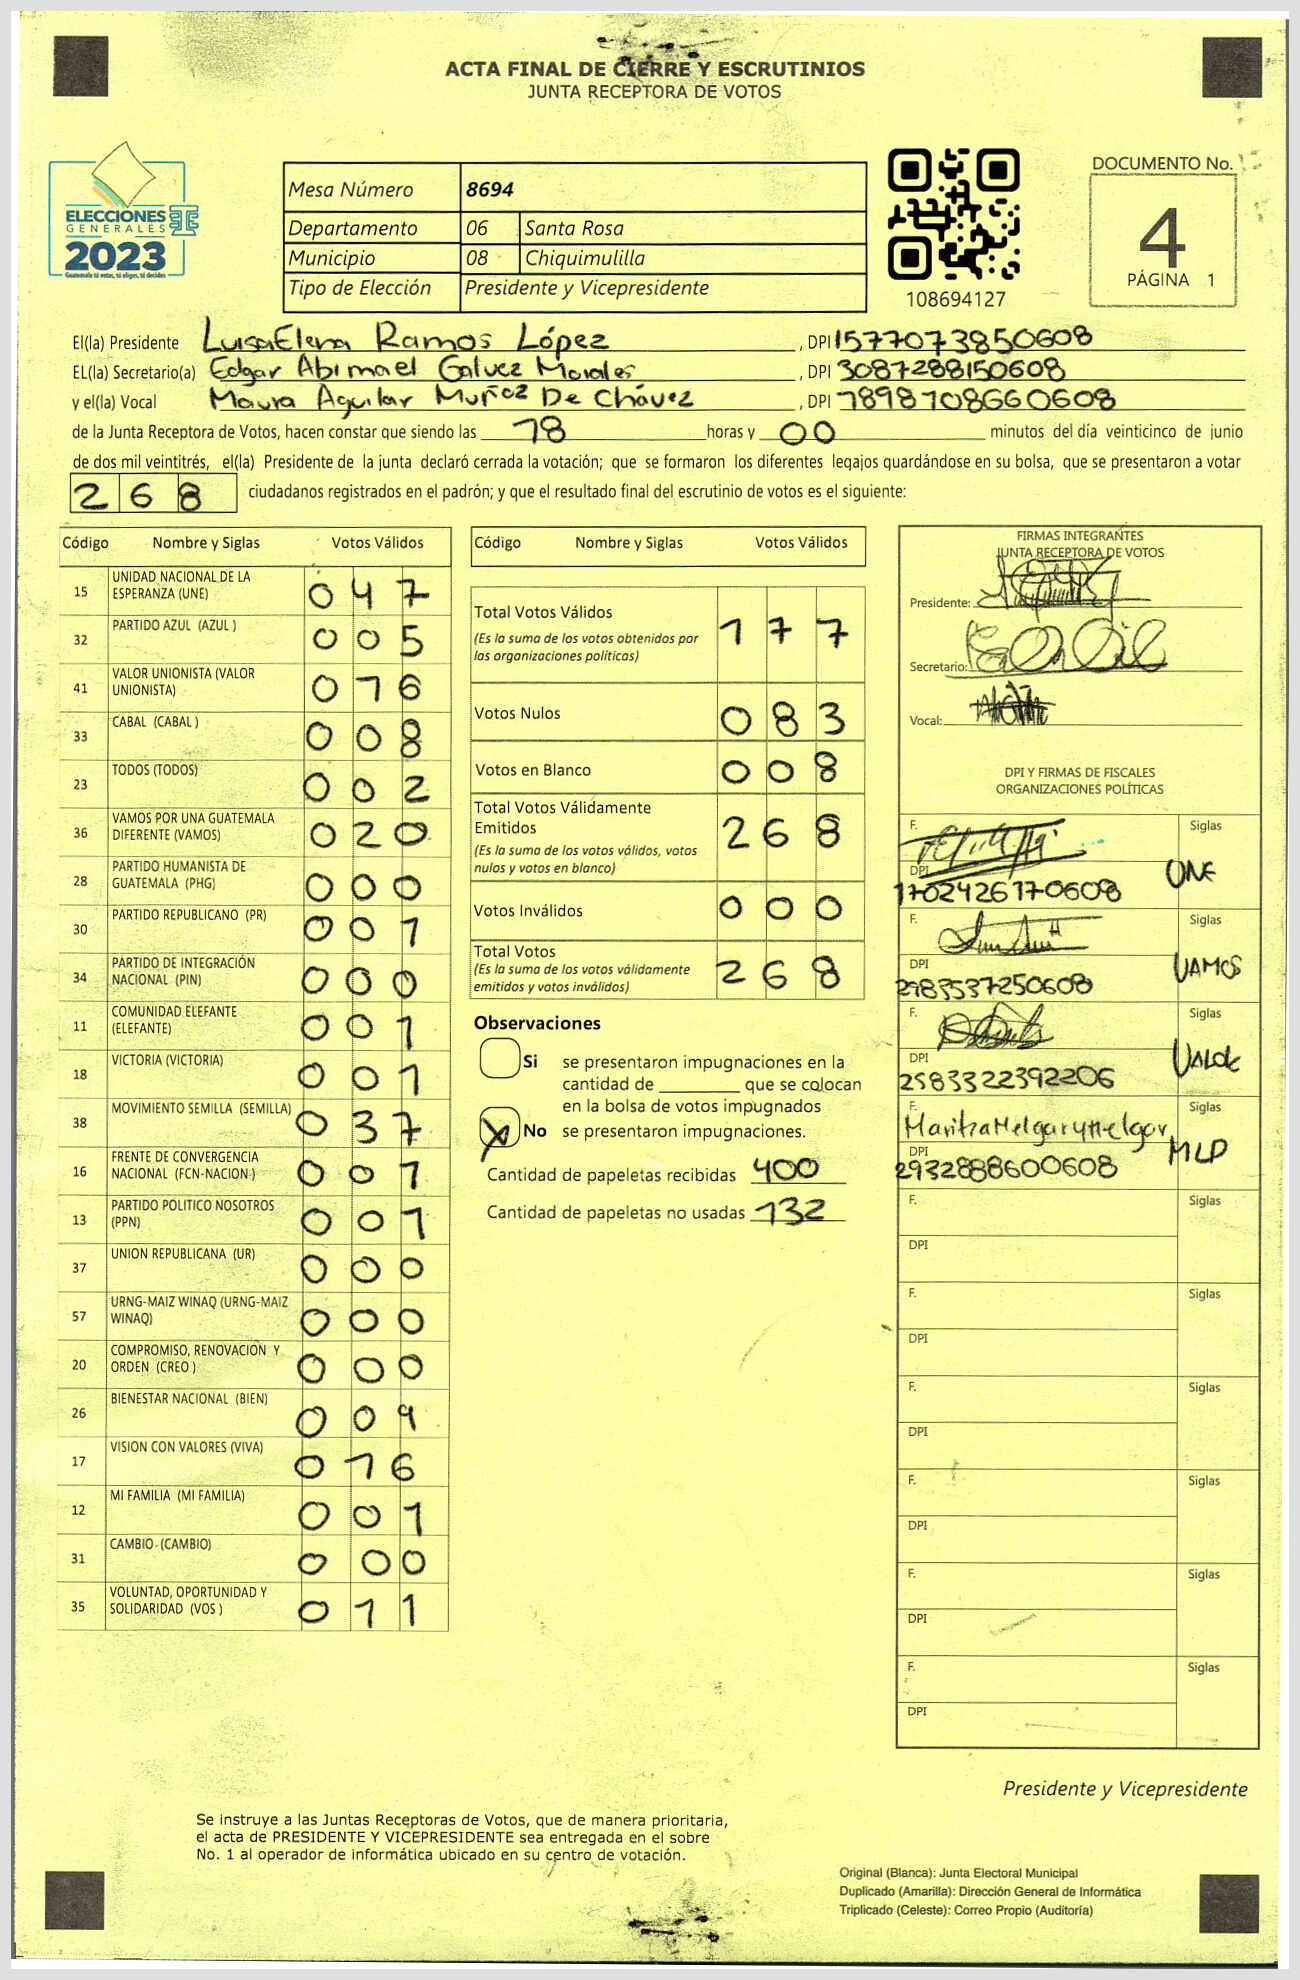 ACTA FINAL DE CIERRE Y ESCRUTINIOS
JUNTA RECEPTORA DE VOTOS
ELECCIONES
GENERALES
2023
Guatemala tú votas, tú eliges, tú decides
Mesa Número 8694
Departamento 06 Santa Rosa
Municipio 08 Chiquimulilla
Tipo de Elección Presidente y Vicepresidente
108694127
DOCUMENTO No.
4
PÁGINA 1
El(la) Presidente Luisa Elena Ramos López, DPI 1577073850608
EL(la) Secretario(a) Edgar Abimael Galvez Morales, DPI 3087288150608
y el(la) Vocal Maura Aguilar Muñoz De Chávez, DPI 1898108660608
de la Junta Receptora de Votos, hacen constar que siendo las 18 horas y 00 minutos del día veinticinco de junio
de dos mil veintitrés, el(la) Presidente de la junta declaró cerrada la votación; que se formaron los diferentes legajos guardándose en su bolsa, que se presentaron a votar
268 ciudadanos registrados en el padrón; y que el resultado final del escrutinio de votos es el siguiente:
Código Nombre y Siglas Votos Válidos
15 UNIDAD NACIONAL DE LA ESPERANZA (UNE) 047
32 PARTIDO AZUL (AZUL ) 005
41 VALOR UNIONISTA (VALOR UNIONISTA) 016
33 CABAL (CABAL ) 008
23 TODOS (TODOS) 002
36 VAMOS POR UNA GUATEMALA DIFERENTE (VAMOS) 020
28 PARTIDO HUMANISTA DE GUATEMALA (PHG) 000
30 PARTIDO REPUBLICANO (PR) 001
34 PARTIDO DE INTEGRACIÓN NACIONAL (PIN) 000
11 COMUNIDAD ELEFANTE (ELEFANTE) 001
18 VICTORIA (VICTORIA) 001
38 MOVIMIENTO SEMILLA (SEMILLA) 037
16 FRENTE DE CONVERGENCIA NACIONAL (FCN-NACION ) 001
13 PARTIDO POLITICO NOSOTROS (PPN) 001
37 UNION REPUBLICANA (UR) 000
57 URNG-MAIZ WINAQ (URNG-MAIZ WINAQ) 000
20 COMPROMISO, RENOVACIÓN Y ORDEN (CREO ) 000
26 BIENESTAR NACIONAL (BIEN) 009
17 VISION CON VALORES (VIVA) 016
12 MI FAMILIA (MI FAMILIA) 001
31 CAMBIO (CAMBIO) 000
35 VOLUNTAD, OPORTUNIDAD Y SOLIDARIDAD (VOS ) 011
Código Nombre y Siglas Votos Válidos
Total Votos Válidos 177
(Es la suma de los votos obtenidos por
las organizaciones políticas)
Votos Nulos 083
Votos en Blanco 008
Total Votos Válidamente
Emitidos 268
(Es la suma de los votos válidos, votos
nulos y votos en blanco)
Votos Inválidos 000
Total Votos 268
(Es la suma de los votos válidamente
emitidos y votos inválidos)
Observaciones
Si se presentaron impugnaciones en la
cantidad de ________ que se colocan
en la bolsa de votos impugnados
X No se presentaron impugnaciones.
Cantidad de papeletas recibidas 400
Cantidad de papeletas no usadas 132
FIRMAS INTEGRANTES
JUNTA RECEPTORA DE VOTOS
Presidente:
Secretario:
Vocal:
DPI Y FIRMAS DE FISCALES
ORGANIZACIONES POLÍTICAS
F. Siglas
DPI 1702426170608 UNE
F. Siglas
DPI 2983537250608 VAMOS
F. Siglas
DPI 2583322392206 VALOR
F. Maritza Melgar y Melgar Siglas
DPI 2932888600608 MLP
F. Siglas
DPI
F. Siglas
DPI
F. Siglas
DPI
F. Siglas
DPI
F. Siglas
DPI
F. Siglas
DPI
Presidente y Vicepresidente
Se instruye a las Juntas Receptoras de Votos, que de manera prioritaria,
el acta de PRESIDENTE Y VICEPRESIDENTE sea entregada en el sobre
No. 1 al operador de informática ubicado en su centro de votación.
Original (Blanca): Junta Electoral Municipal
Duplicado (Amarilla): Dirección General de Informática
Triplicado (Celeste): Correo Propio (Auditoría)